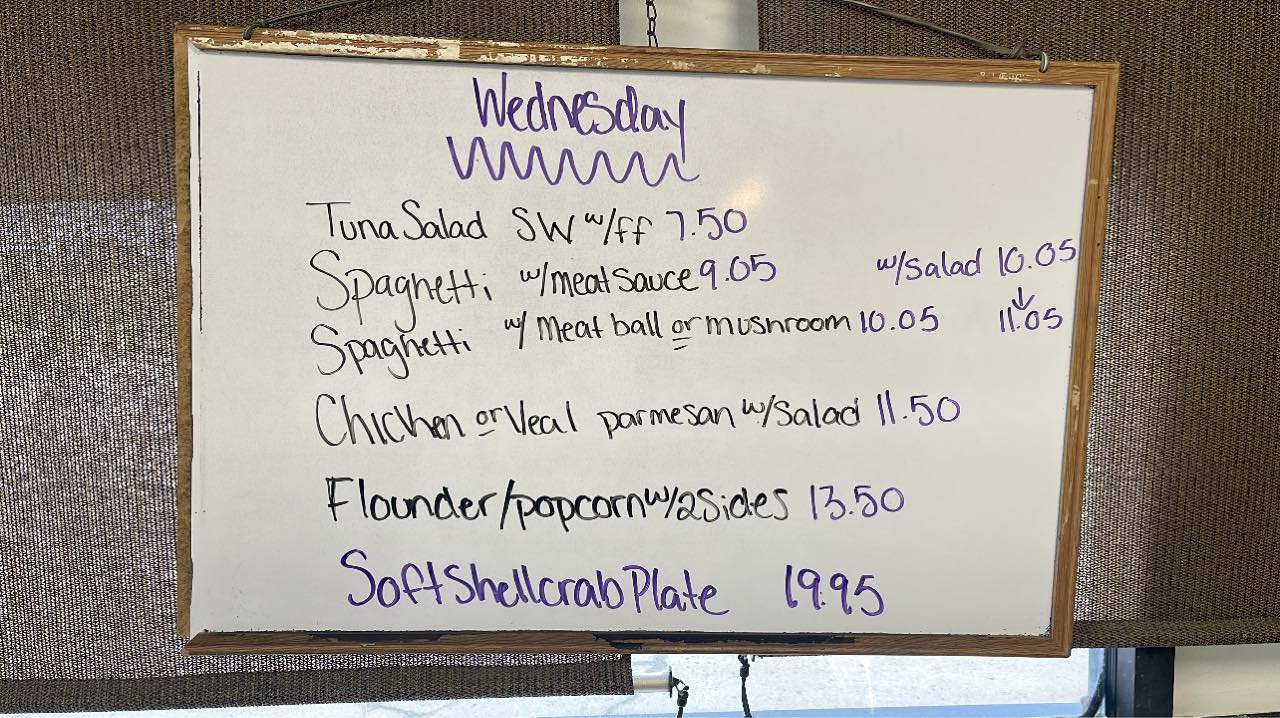 Wednesday
Tuna Salad SW w/ff 7.50
Spaghetti w/meat sauce 9.05 w/salad 10.05
Spaghetti w/ Meat ball or mushroom 10.05 ↓ 11.05
Chicken or Veal parmesan w/Salad 11.50
Flounder/popcorn w/2 Sides 13.50
Soft Shell crab Plate 19.95